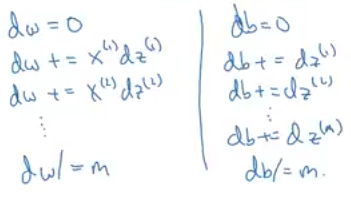 dw = 0
dw += x⁽¹⁾dz⁽¹⁾
dw += x⁽²⁾dz⁽²⁾
⋮
dw /= m
db = 0
db += dz⁽¹⁾
db += dz⁽²⁾
⋮
db += dz⁽ᵐ⁾
db /= m.